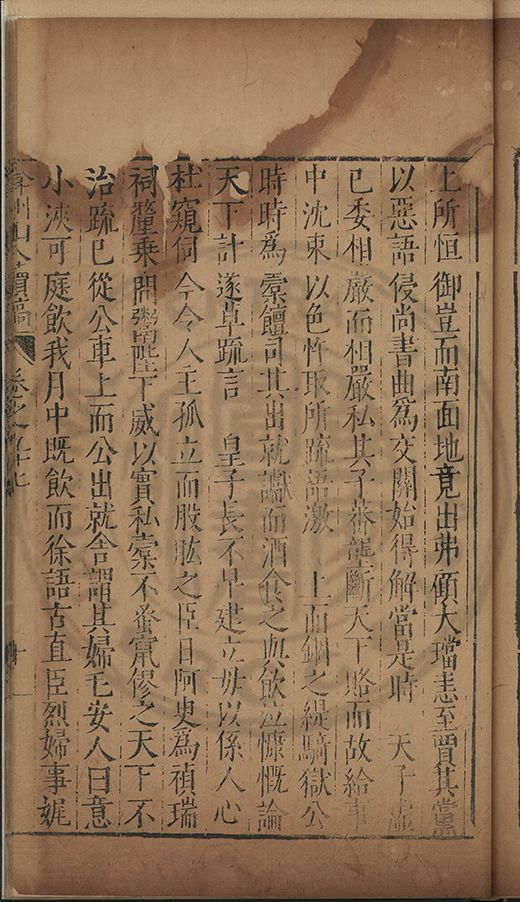 上所恒御豈而南面地竟出弗顧大璫恚至賈其黨
以惡語侵尚書曲為交關始得解當是時　天子虛
已委相嚴而相嚴私其子蕃壟斷天下賂而故給事
中沈束以色忤取所疏語激　上而錮之緹騎獄公
時時為橐饘司其出就讞而酒食之與飲泣慷慨論
天下計遂草疏言　皇子長不早建立毋以係人心
杜窺伺今令人主孤立而股肱之臣日阿臾為禎瑞
祠釐乗間鬻陛下威以實私橐不蚤竄僇之天下不
治疏已從公車上而公出就舍謂其婦毛安人曰意
小浹可庭飲我月中既飲而徐語古直臣烈婦事娓
弇州山人續稿　卷之九十七　十一